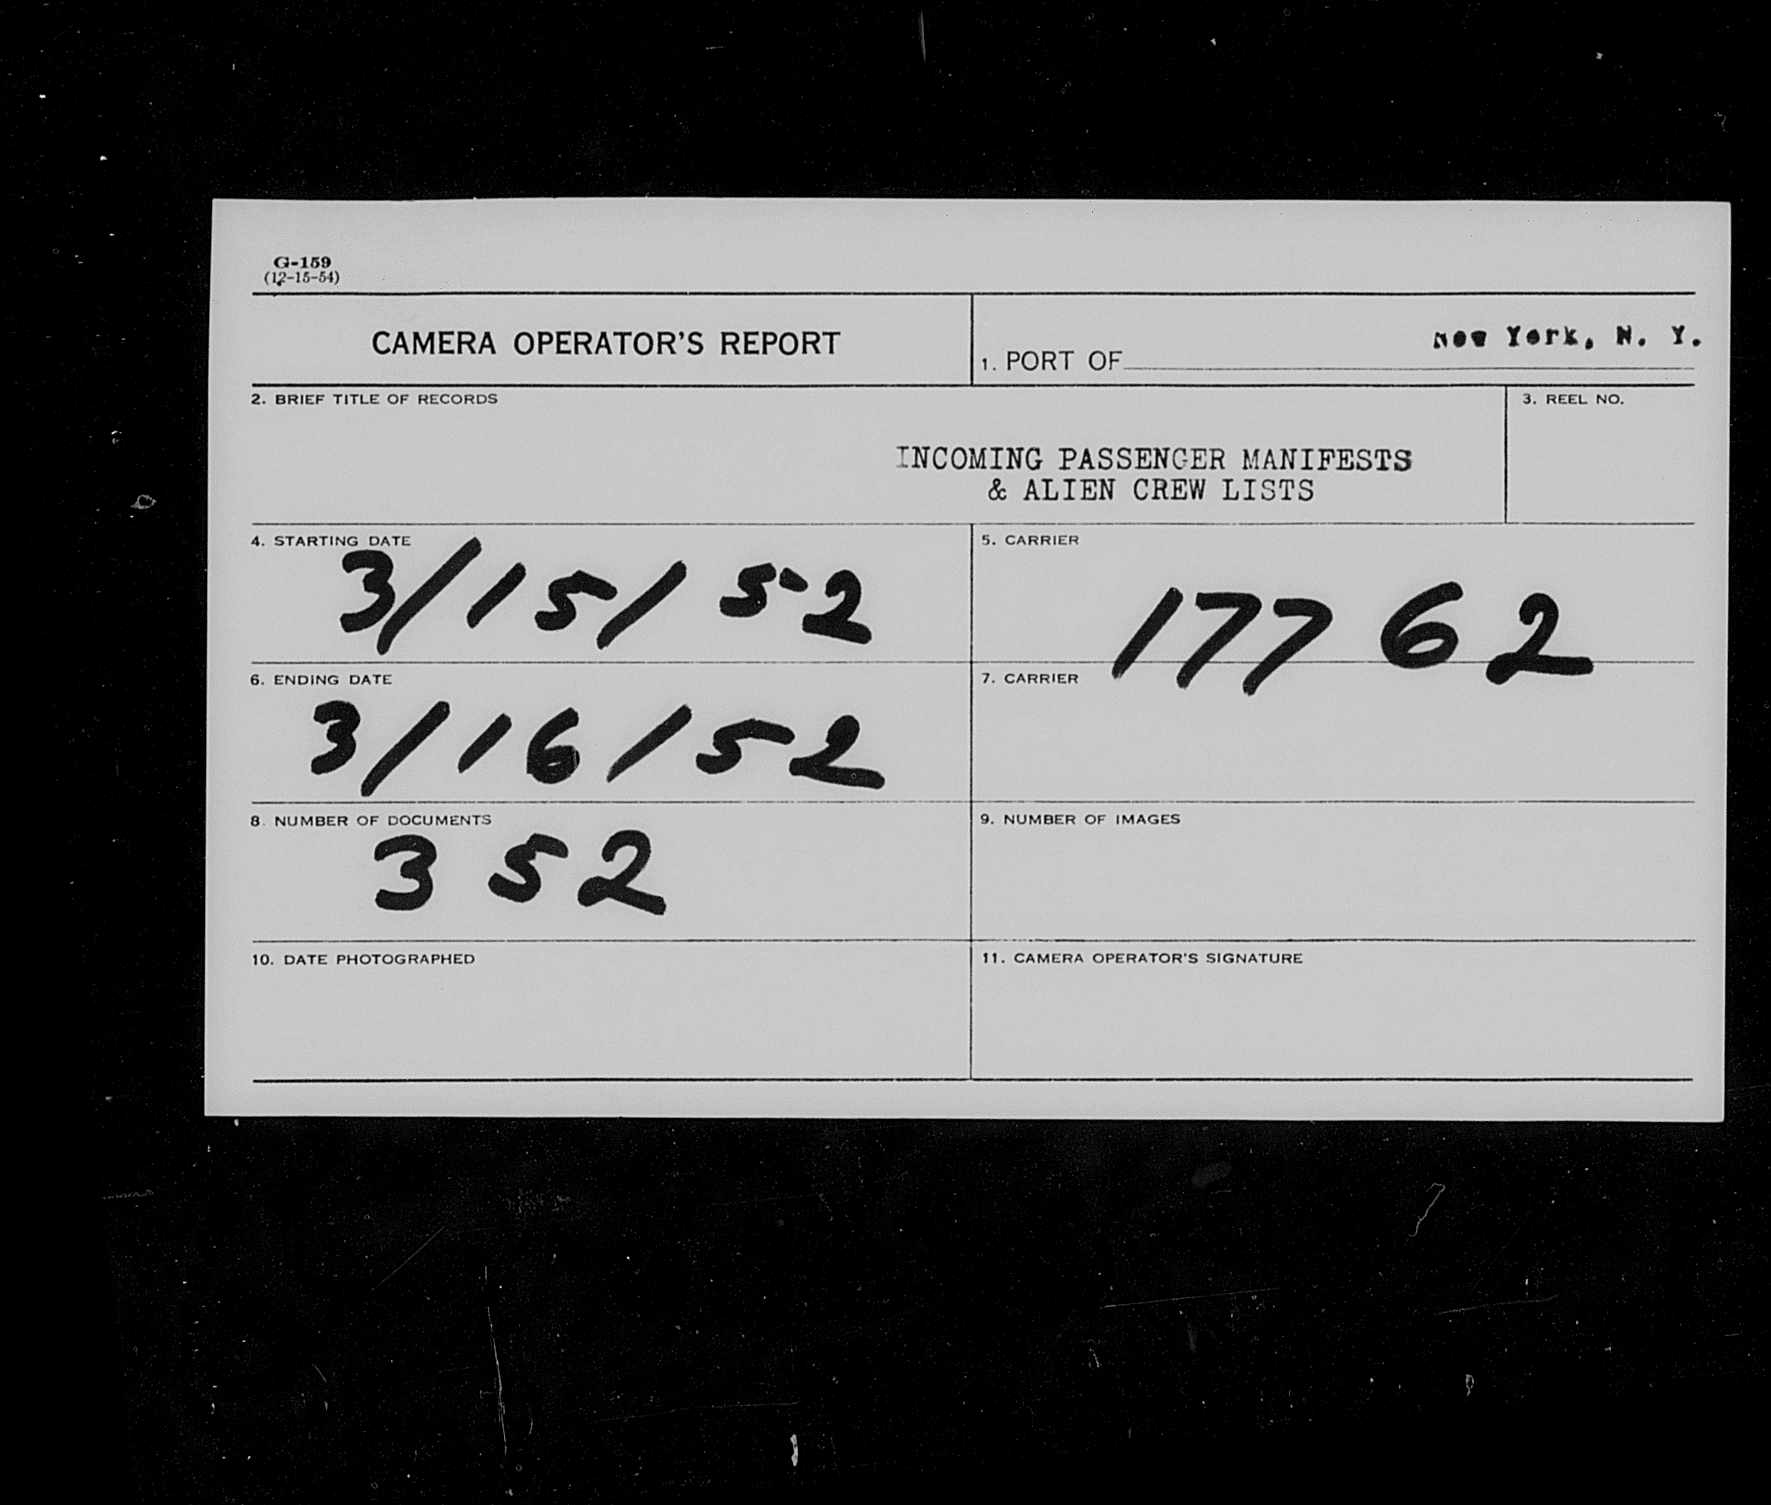 G-159
(12-15-54)
CAMERA OPERATOR'S REPORT
1. PORT OF New York, N. Y.
2. BRIEF TITLE OF RECORDS
3. REEL NO.
INCOMING PASSENGER MANIFESTS
& ALIEN CREW LISTS
4. STARTING DATE
3/15/52
5. CARRIER
17762
6. ENDING DATE
3/16/52
7. CARRIER
8. NUMBER OF DOCUMENTS
352
9. NUMBER OF IMAGES
10. DATE PHOTOGRAPHED
11. CAMERA OPERATOR'S SIGNATURE